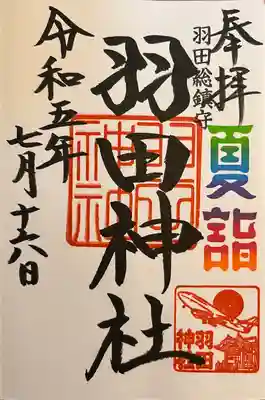 奉拝
羽田総鎮守
夏詣
羽田神社
羽田神社
羽田神社
令和五年
七月十六日